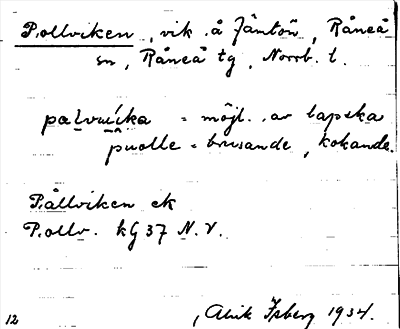 Pollviken, vik å Jämtön, Råneå
sn, Råneå tg, Norrb. l.
palvuika = möjl. av lapska
puolle = brusande, kokande.
Pållviken ek
Pollv. kG 37 N.V.
12
, Alrik Isberg 1934.